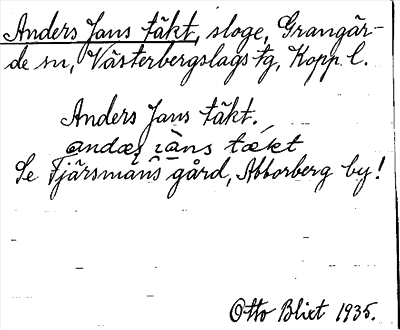 Anders Jans täkt, sloge, Grangär-
de sn, Västerbergslags tg, Kopp. l.
Anders Jans täkt.
andæș ıàns tǽkt
Se Tjärsmans gård, Abborberg by!
Otto Blixt 1935.